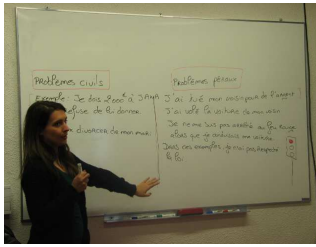 Problèmes civils
Exemple : Je dois 2000€ à
refuse de lui donner
divorcer de mon mari
Problèmes pénaux
J'ai tué mon voisin pour de l'argent
J'ai volé la voiture de mon voisin
Je ne me suis pas arrêtée au feu rouge
alors que je conduisais ma voiture.
Dans ces exemples, je n'ai pas respecté
la loi